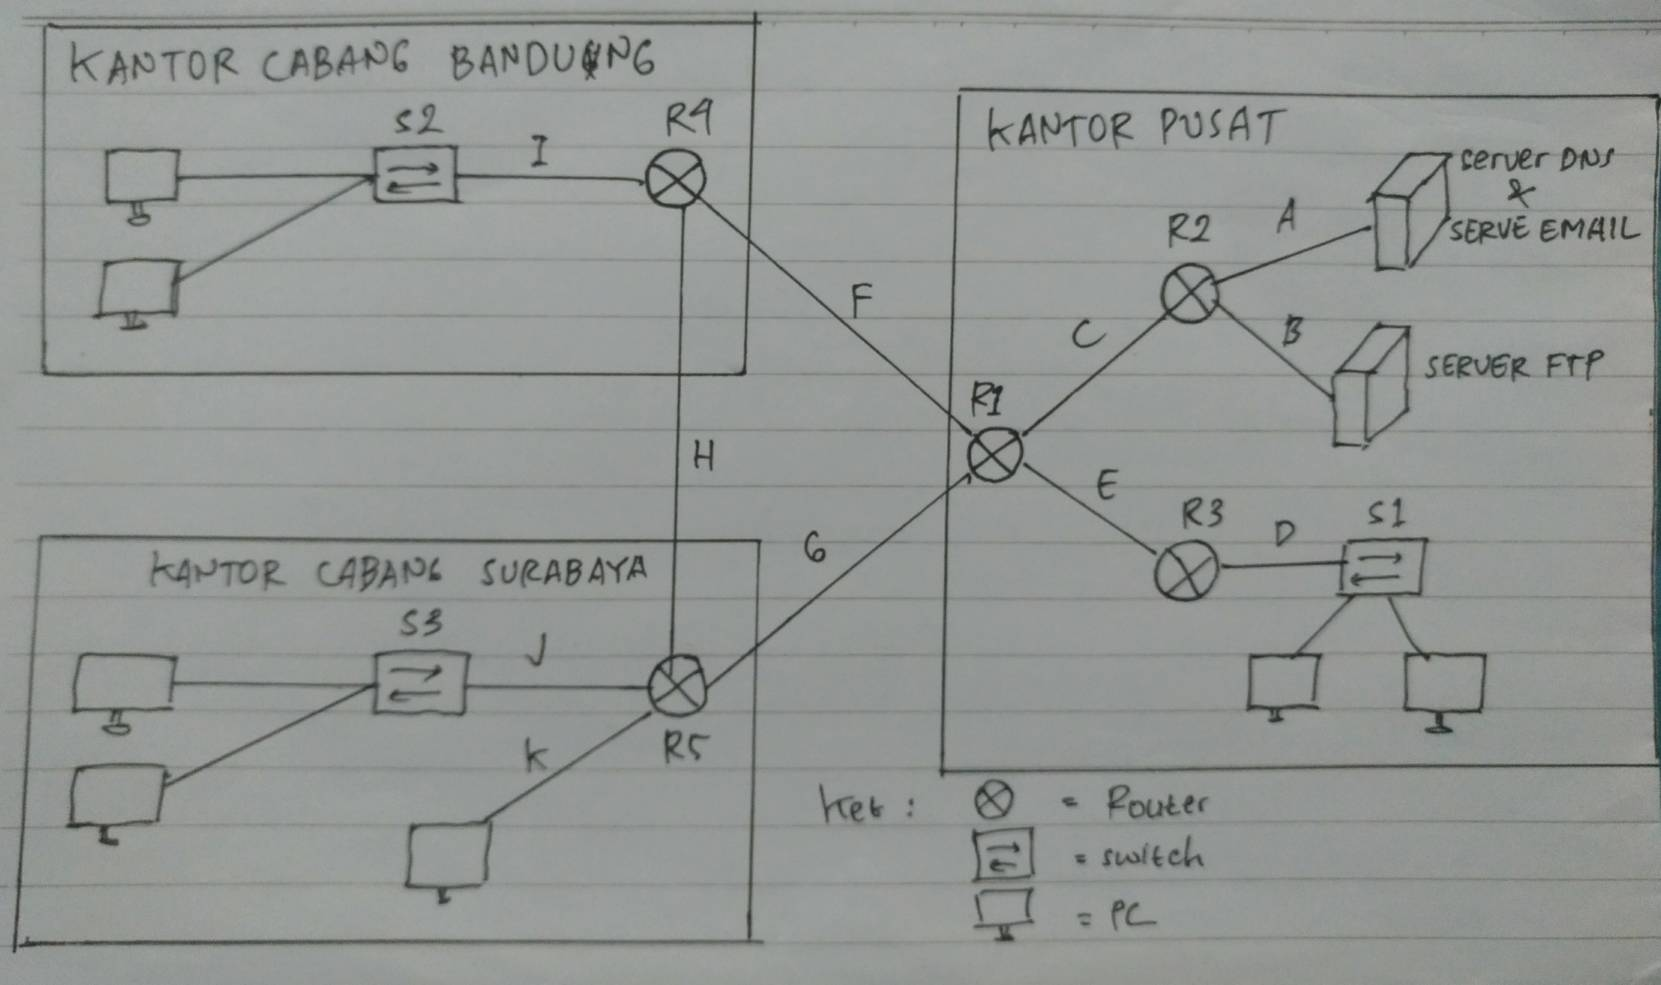 KANTOR CABANG BANDUNG
S2
I
R4
KANTOR PUSAT
server DNS
&
SERVE EMAIL
R2
A
F
C
B
SERVER FTP
R1
H
E
G
R3
D
S1
KANTOR CABANG SURABAYA
S3
J
K
R5
Ket :
= Router
= switch
= PC